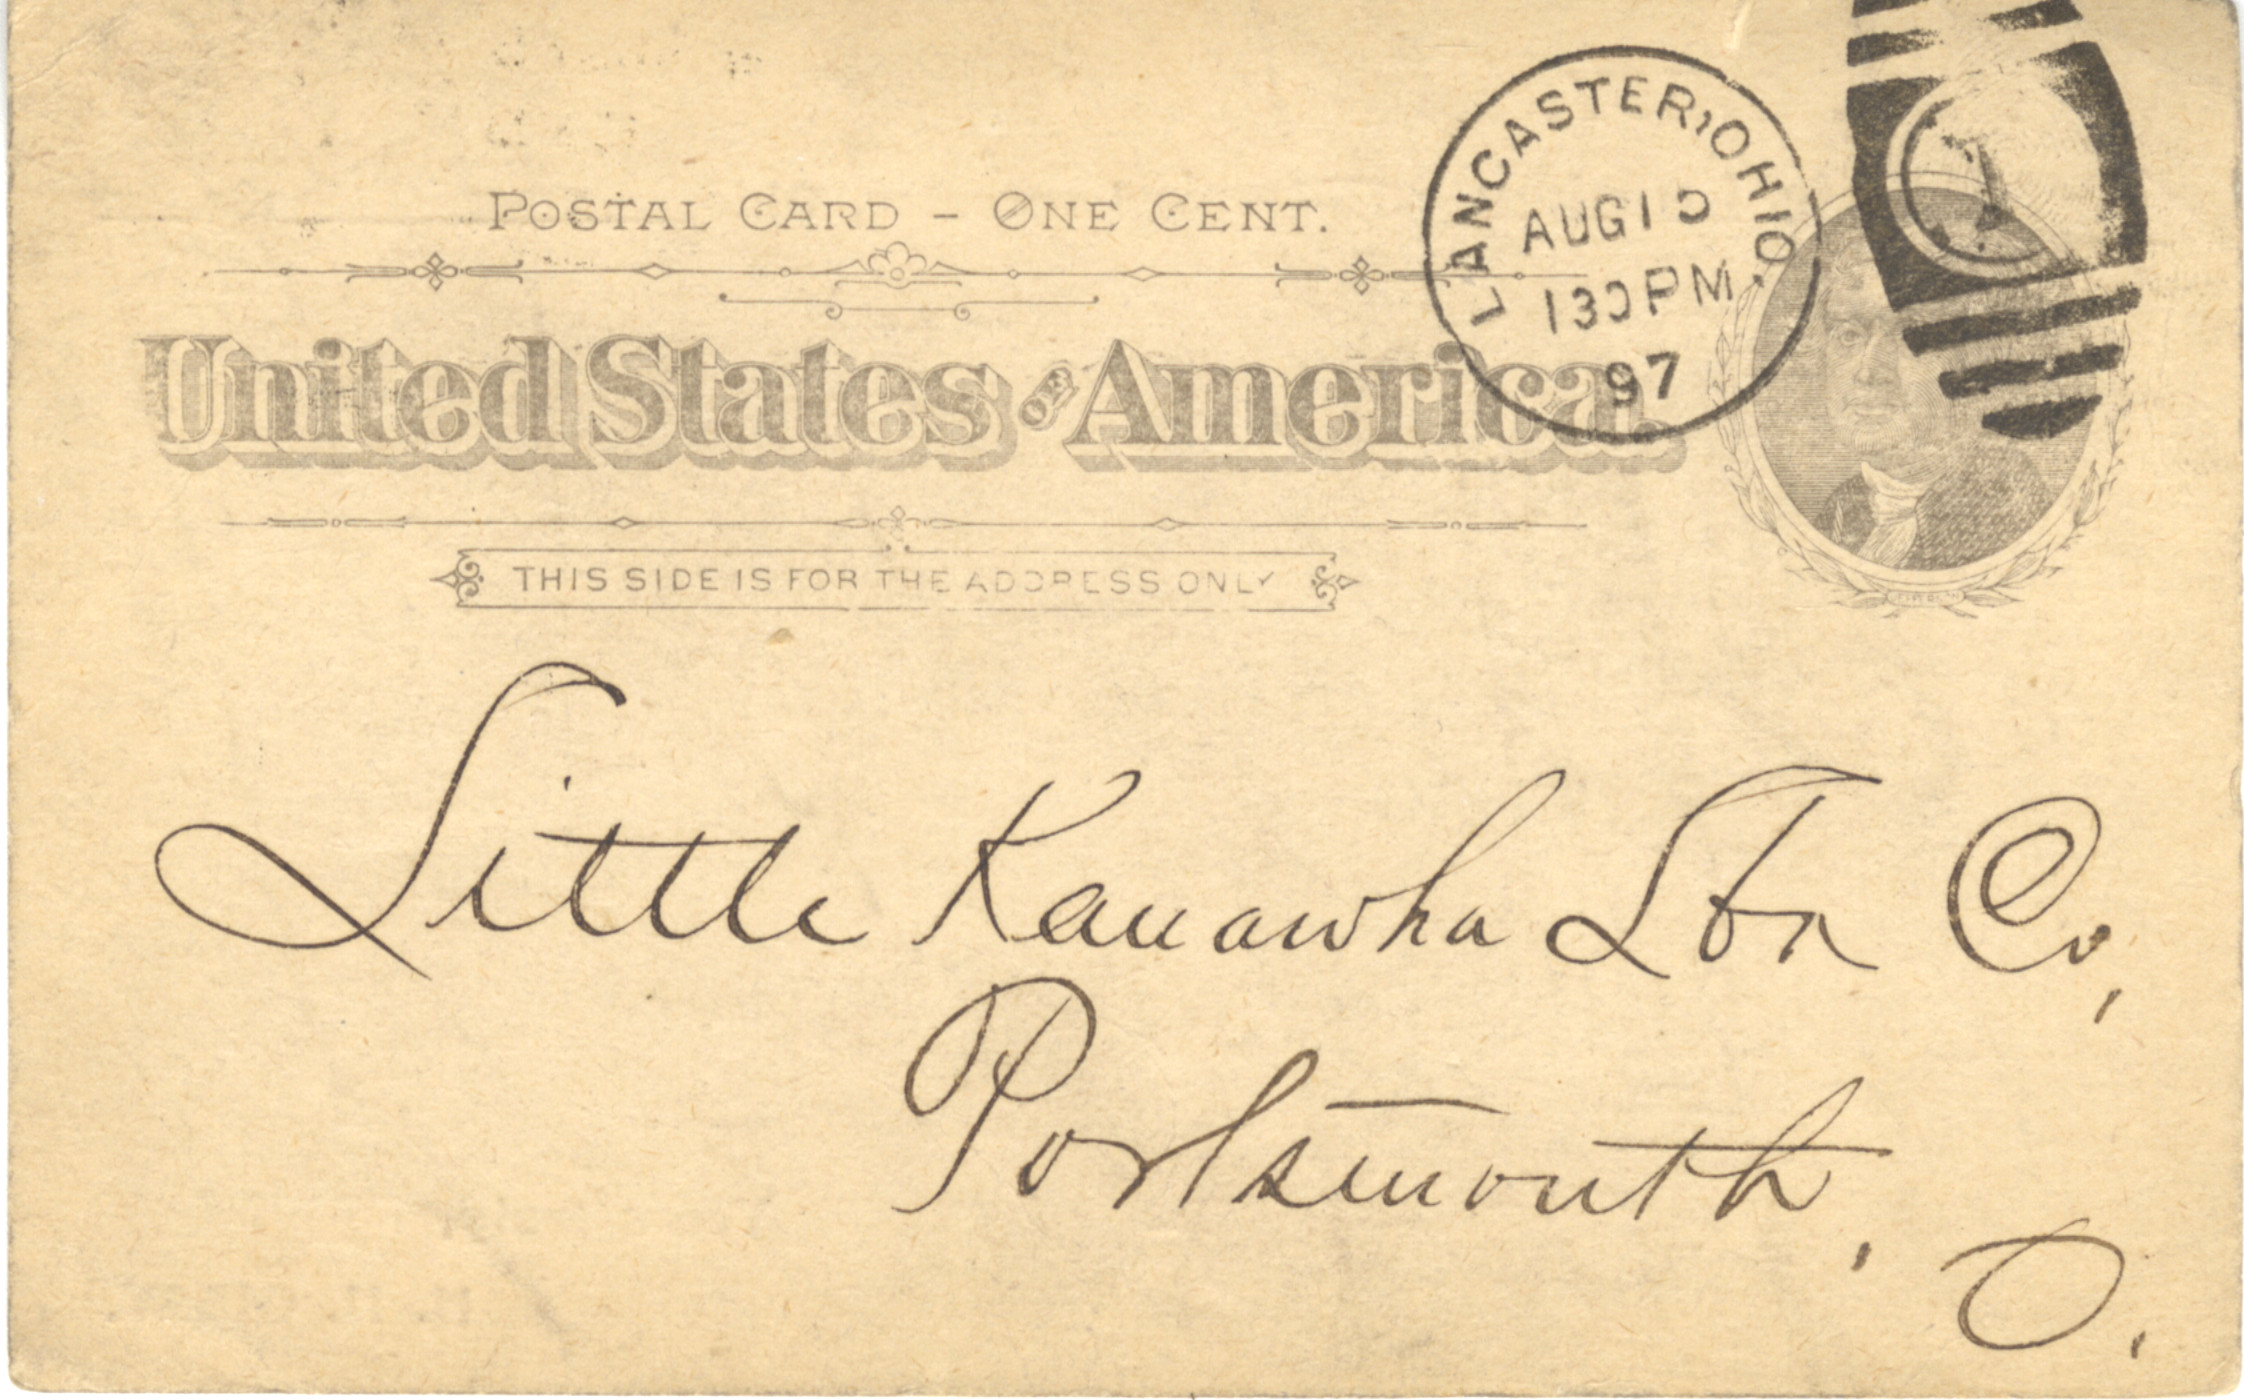 POSTAL CARD – ONE CENT.
LANCASTER, OHIO.
AUG 10
130 PM
97
United States of America.
THIS SIDE IS FOR THE ADDRESS ONLY
Little Kanawha Lbr Co,
Portsmouth,
O.